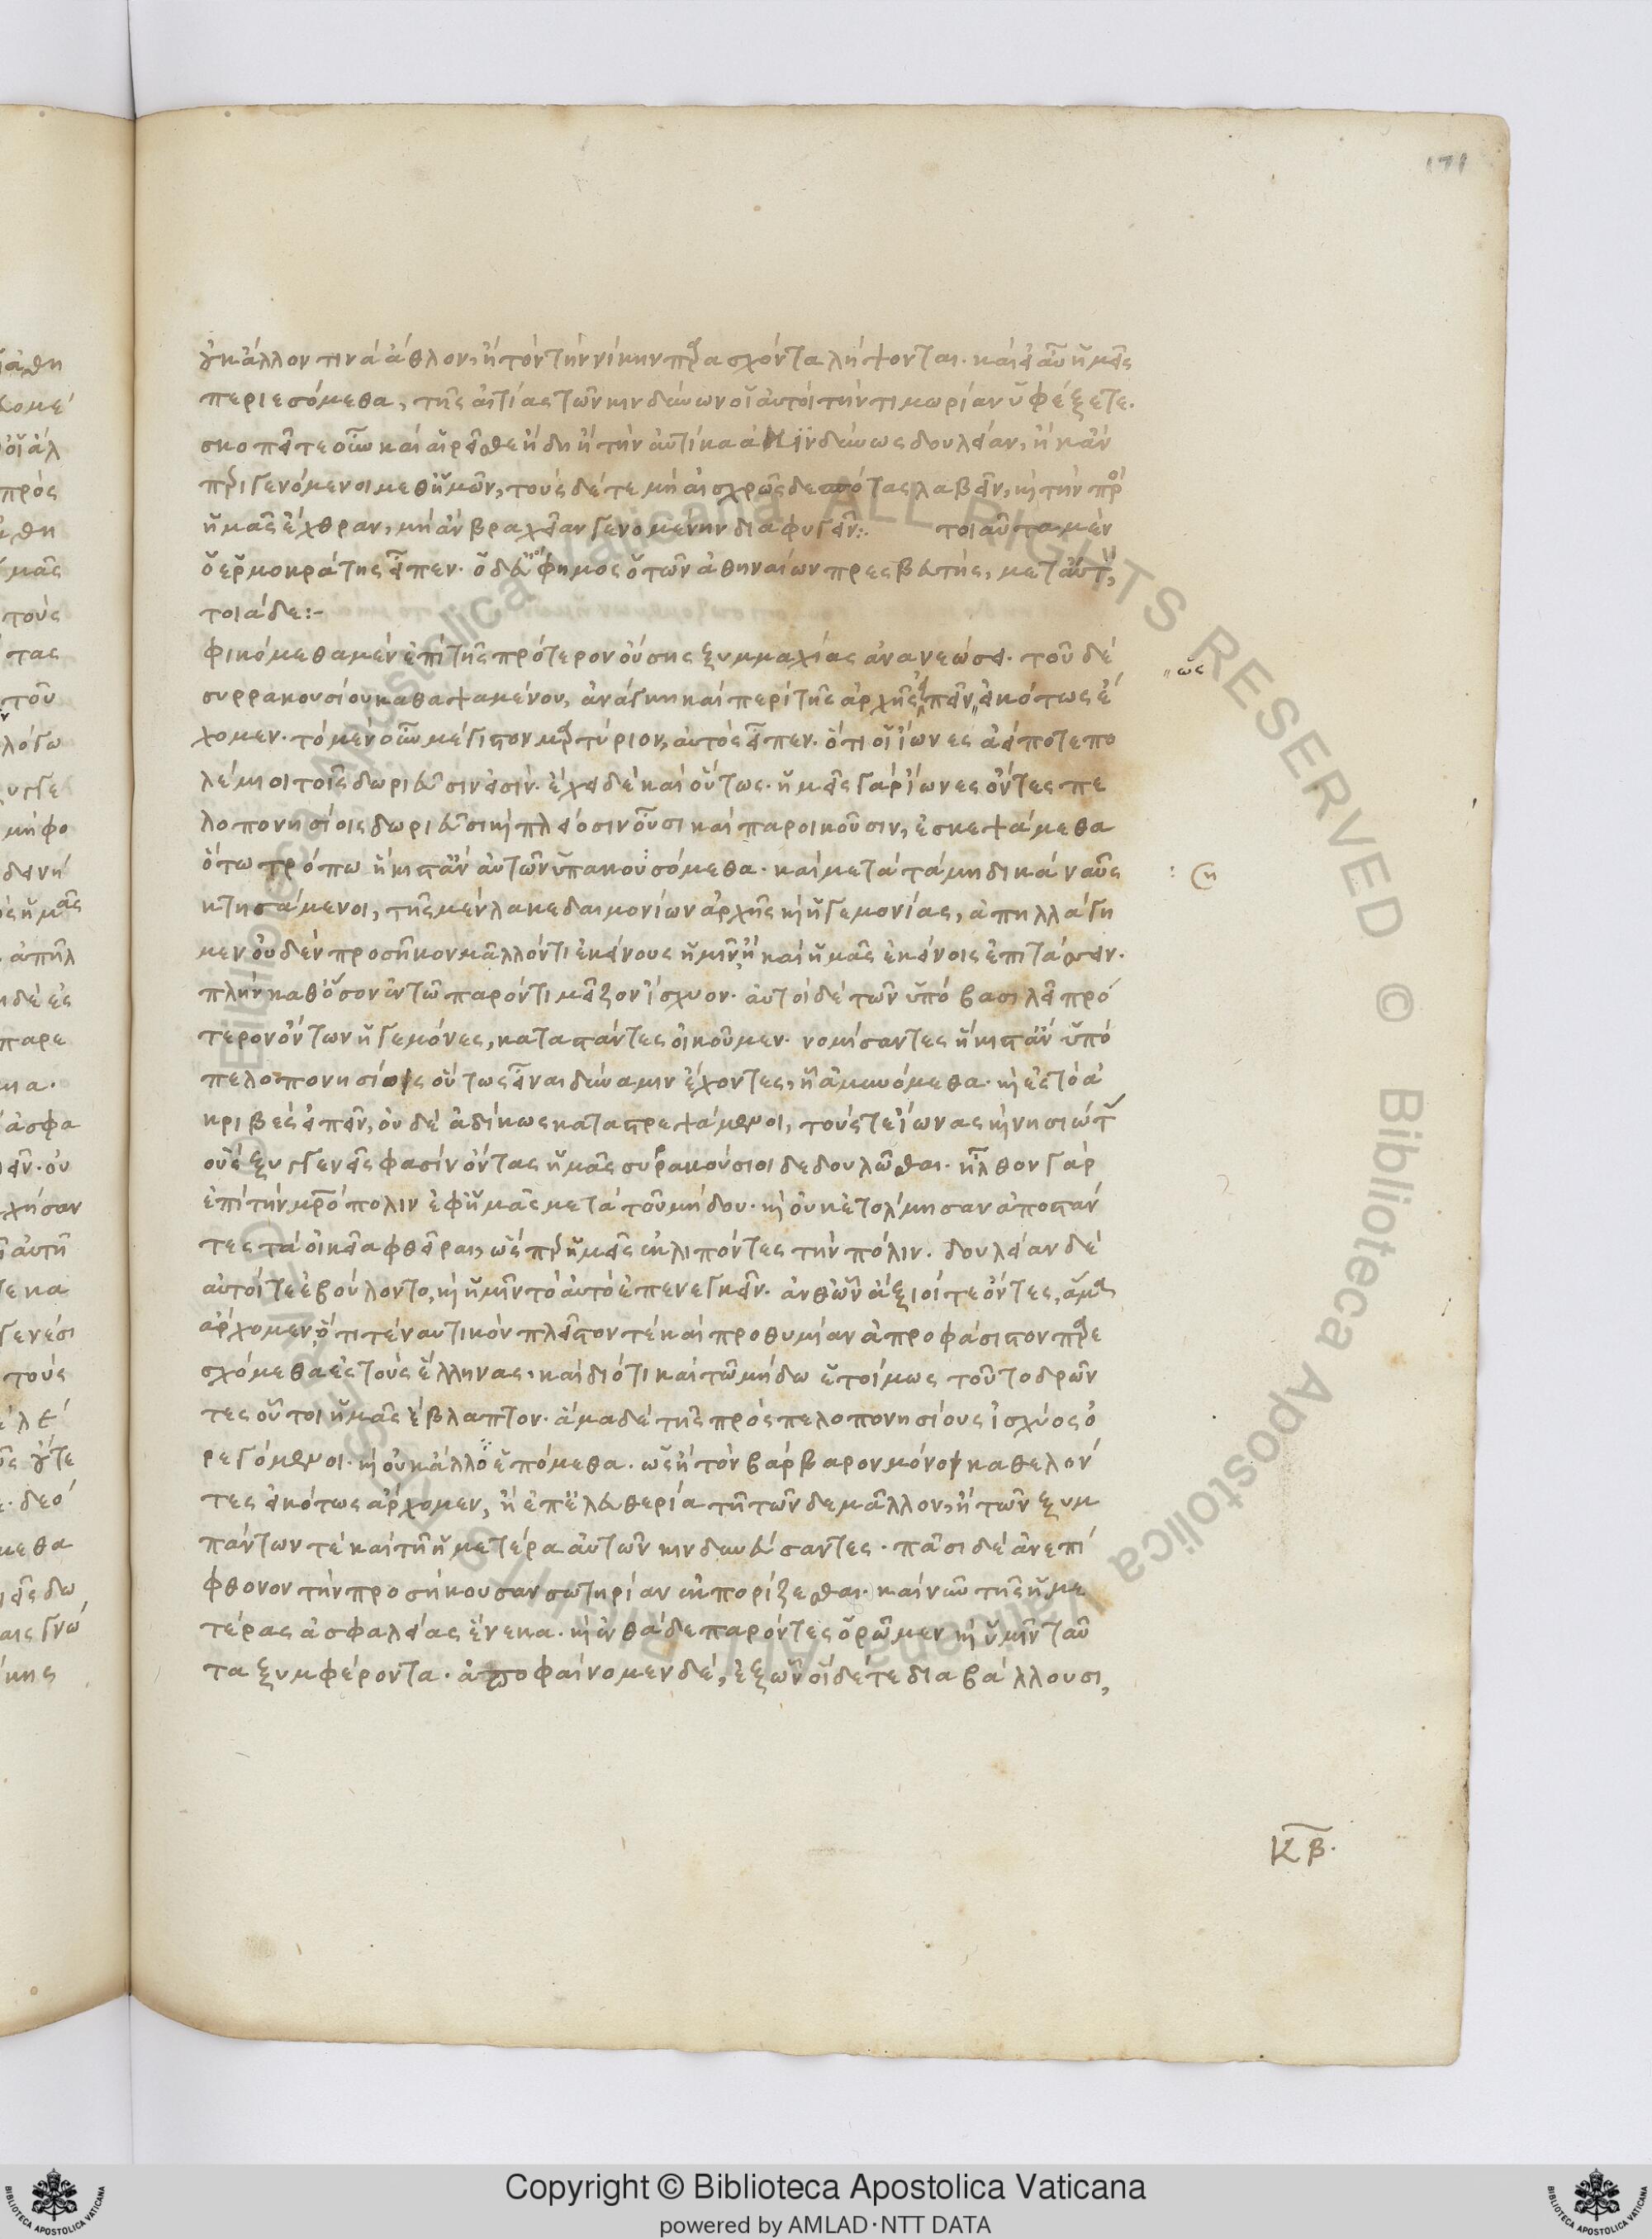 171
οὐκ ἄλλον τινὰ ἆθλον, ἢ τὸν τὴν νίκην παρασχόντα λήψονται. καὶ εἰ αὖ ἡμεῖς
περιεσόμεθα, τῆς αἰτίας τῶν κινδύνων οἱ αὐτοὶ τὴν τιμωρίαν ὑφέξετε.
σκοπεῖτε οὖν καὶ αἱρεῖσθε ἤδη ἢ τὴν αὐτίκα ἀκινδύνως δουλείαν, ἢ κἂν
περιγενόμενοι μεθ' ἡμῶν, τούσδέ τε μὴ αἰσχρῶς δεσπότας λαβεῖν, καὶ τὴν πρὸς
ἡμᾶς ἔχθραν, μὴ ἂν βραχεῖαν γενομένην διαφυγεῖν:. τοιαῦτα μὲν
ὁ ἑρμοκράτης εἶπεν. ὁ δ' εὔφημος ὁ τῶν ἀθηναίων πρεσβευτὴς, μετ' αὐτὸν,
τοιάδε:-
φικόμεθα μὲν ἐπὶ τῆς πρότερον οὔσης ξυμμαχίας ἀνανεώσει. τοῦ δὲ
συρρακουσίου καθαψαμένου, ἀνάγκη καὶ περὶ τῆς ἀρχῆς εἰπεῖν εἰκότως ἔ
ὡς
χομεν. τὸ μὲν οὖν μέγιστον μαρτύριον, αὐτὸς εἶπεν. ὅτι οἱ ἴωνες ἀεί ποτε πο
λέμιοι τοῖς δωριεῦσιν εἰσίν. ἔχει δὲ καὶ οὕτως. ἡμεῖς γὰρ ἴωνες ὄντες πε
λοπονησίοις δωριεῦσι καὶ πλείοσιν οὖσι καὶ παροικοῦσιν, ἐσκεψάμεθα
ὅτω τρόπω ἥκιστ' ἂν αὐτῶν ὑπακουσόμεθα. καὶ μετὰ τὰ μηδικὰ ναῦς
κτησάμενοι, τῆς μὲν λακεδαιμονίων ἀρχῆς καὶ ἡγεμονίας, ἀπηλλάγη
μεν οὐδὲν προσῆκον μᾶλλόν τι ἐκείνους ἡμῖν ἢ καὶ ἡμᾶς ἐκείνοις ἐπιτάσσειν.
πλὴν καθ' ὅσον ἐν τῶ παρόντι μεῖζον ἴσχυον. αὐτοὶ δὲ τῶν ὑπὸ βασιλεῖ πρό
τερον ὄντων ἡγεμόνες, καταστάντες οἰκοῦμεν. νομίσαντες ἥκιστ' ἂν ὑπὸ
πελοπονησίοις οὕτως εἶναι δύναμιν ἔχοντες, ἧ ἀμυνόμεθα. καὶ ἐς τὸ ἀ
κριβὲς εἰπεῖν, οὐδὲ ἀδίκως καταστρεψάμενοι, τούς τε ἴωνας καὶ νησιώτας
οὓς ξυγγενεῖς φασὶν ὄντας ἡμᾶς συρακούσιοι δεδουλῶσθαι. ἦλθον γὰρ
ἐπὶ τὴν μητρόπολιν ἐφ' ἡμᾶς μετὰ τοῦ μήδου. καὶ οὐκ ἐτόλμησαν ἀποστάν
τες τὰ οἰκεῖα φθεῖραι, ὥσπερ ἡμεῖς ἐκλιπόντες τὴν πόλιν. δουλείαν δὲ
αὐτοί τε ἐβούλοντο, καὶ ἡμῖν τὸ αὐτὸ ἐπενεγκεῖν. ἀνθ' ὧν ἄξιοί τε ὄντες, ἅμα
ἄρχομεν, ὅτι τε ναυτικὸν πλεῖστον τὲ καὶ προθυμίαν ἀπροφάσιστον παρε
σχόμεθα ἐς τοὺς ἕλληνας. καὶ διότι καὶ τῶ μήδω ἑτοίμως τοῦτο δρῶν
τες οὗτοι ἡμᾶς ἔβλαπτον. ἅμα δὲ τῆς πρὸς πελοπονησίους ἰσχύος ὀ
ρεγόμενοι. καὶ οὐκ ἄλλο ἑπόμεθα. ὡς ἢ τὸν βάρβαρον μόνοι καθελόν
τες εἰκότως ἄρχομεν, ἢ ἐπ' ἐλευθερία τῆ τῶνδε μᾶλλον, ἢ τῶν ξυμ
πάντων τὲ καὶ τῆ ἡμετέρα αὐτῶν κινδυνεύσαντες. πᾶσι δὲ ἀνεπί
φθονον τὴν προσήκουσαν σωτηρίαν ἐκπορίζεσθαι. καὶ νῦν τῆς ἡμε
τέρας ἀσφαλείας ἕνεκα. καὶ ἐνθάδε παρόντες ὁρῶμεν καὶ ὑμῖν ταῦ
τα ξυμφέροντα. ἀποφαίνομεν δὲ, ἐξ ὧν οἵδε τε διαβάλλουσι,
κβ.
Copyright © Biblioteca Apostolica Vaticana
powered by AMLAD·NTT DATA